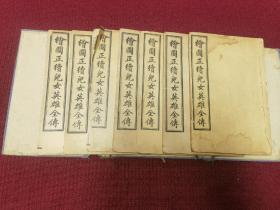 繪圖正續兒女英雄全傳
繪圖正續兒女英雄全傳
繪圖正續兒女英雄全傳
繪圖正續兒女英雄全傳
繪圖正續兒女英雄全傳
繪圖正續兒女英雄全傳
繪圖正續兒女英雄全傳